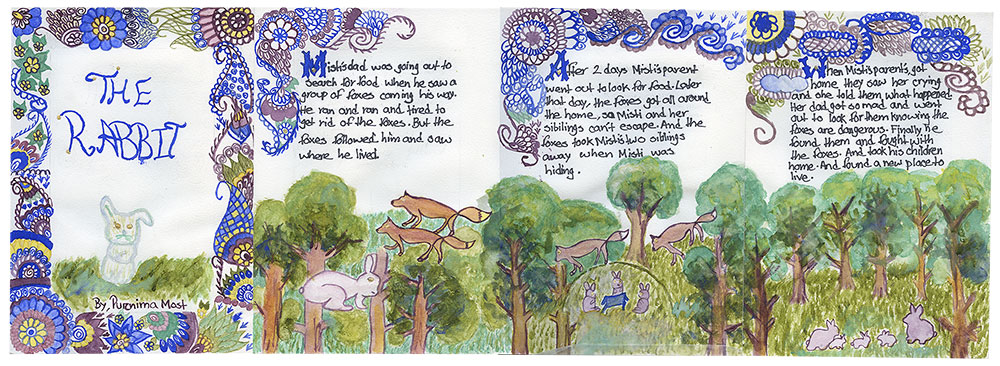 THE
RABBIT
By, Purnima Mast
Misti's dad was going out to
search for food when he saw a
group of foxes coming his way.
He ran and ran and tired to
get rid of the foxes. But the
foxes followed him and saw
where he lived.
After 2 days Misti's parent
went out to look for food. Later
that day, the foxes got all around
the home, so Misti and her
siblings can't escape. And the
foxes took Misti's two siblings
away when Misti was
hiding.
When Misti's parents, got
home they saw her crying
and she told them what happened.
Her dad got so mad and went
out to look for them knowing the
foxes are dangerous. Finally he
found them and fought with
the foxes. And took his children
home. And found a new place to
live.